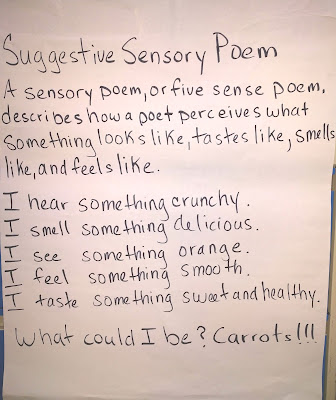 Suggestive Sensory Poem
A sensory poem, or five sense poem,
describes how a poet perceives what
something looks like, tastes like, smells
like, and feels like.
I hear something crunchy.
I smell something delicious.
I see something orange.
I feel something smooth.
I taste something sweet and healthy.
What could I be? Carrots!!!